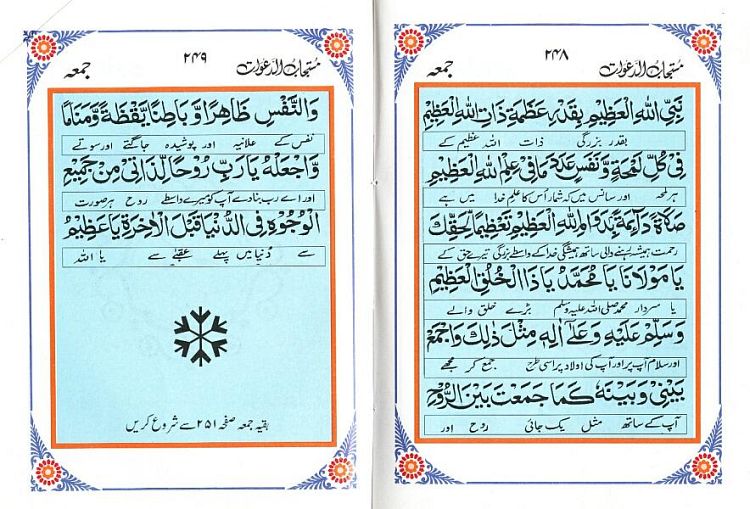 مستجاب الدعوات ۲۴۸ جمعہ
نَبِيِّ اللهِ الْعَظِيْمِ بِقَدْرِ عَظَمَةِ ذَاتِ اللهِ الْعَظِيْمِ
بقدر بزرگی ذات اللہ عظیم کے
فِيْ كُلِّ لَمْحَةٍ وَّنَفَسٍ عَدَدَ مَا فِيْ عِلْمِ اللهِ الْعَظِيْمِ
ہر لمحہ اور سانس میں کہ شمار اُس کا علمِ خدا میں ہے
صَلَاةً دَائِمَةً بِدَوَامِ اللهِ الْعَظِيْمِ تَعْظِيْمًا لِحَقِّكَ
رحمت ہمیشہ رہنے والی ساتھ ہمیشگی خدا کے واسطے بزرگی تیرے حق کے
يَا مَوْلَانَا يَا مُحَمَّدُ يَا ذَا الْخُلُقِ الْعَظِيْمِ
یا سردار محمد صلی اللہ علیہ وسلم بڑے خلق والے
وَسَلِّمْ عَلَيْهِ وَعَلٰى اٰلِهٖ مِثْلَ ذٰلِكَ وَاجْمَعْ
اور سلام آپ پر اور آپ کی اولاد پر اسی طرح جمع کر مجھے
بَيْنِيْ وَبَيْنَهٗ كَمَا جَمَعْتَ بَيْنَ الرُّوْحِ
آپ کے ساتھ مثل یک جائی روح اور
مستجاب الدعوات ۲۴۹ جمعہ
وَالنَّفْسِ ظَاهِرًا وَّبَاطِنًا يَّقْظَةً وَّمَنَامًا
نفس کے علانیہ اور پوشیدہ جاگتے اور سوتے
وَاجْعَلْهُ يَا رَبِّ رُوْحًا لِّذَاتِيْ مِنْ جَمِيْعِ
اور اے رب بنا دے آپ کو میرے واسطے روح ہر صورت
الْوُجُوْهِ فِي الدُّنْيَا قَبْلَ الْاٰخِرَةِ يَا عَظِيْمُ
سے دُنیا میں پہلے عقبٰے سے یا اللہ
بقیہ جمعہ صفحہ ۲۵۱ سے شروع کریں